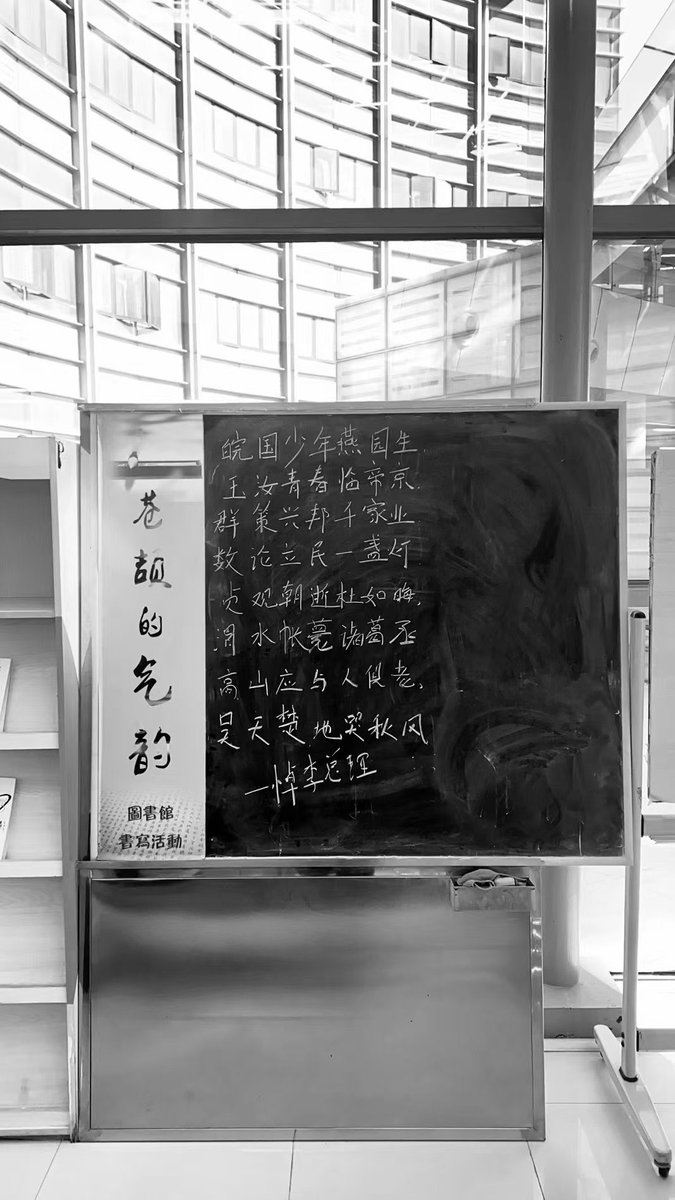 苍颉的气韵
圖書館
書寫活動
皖国少年燕园生
玉汝青春临帝京
群策兴邦千家业
数论立民一盏灯
贞观朝逝杜如晦,
渭水帐薨诸葛丞
高山应与人俱老,
吴天楚地哭秋风
—悼李总理